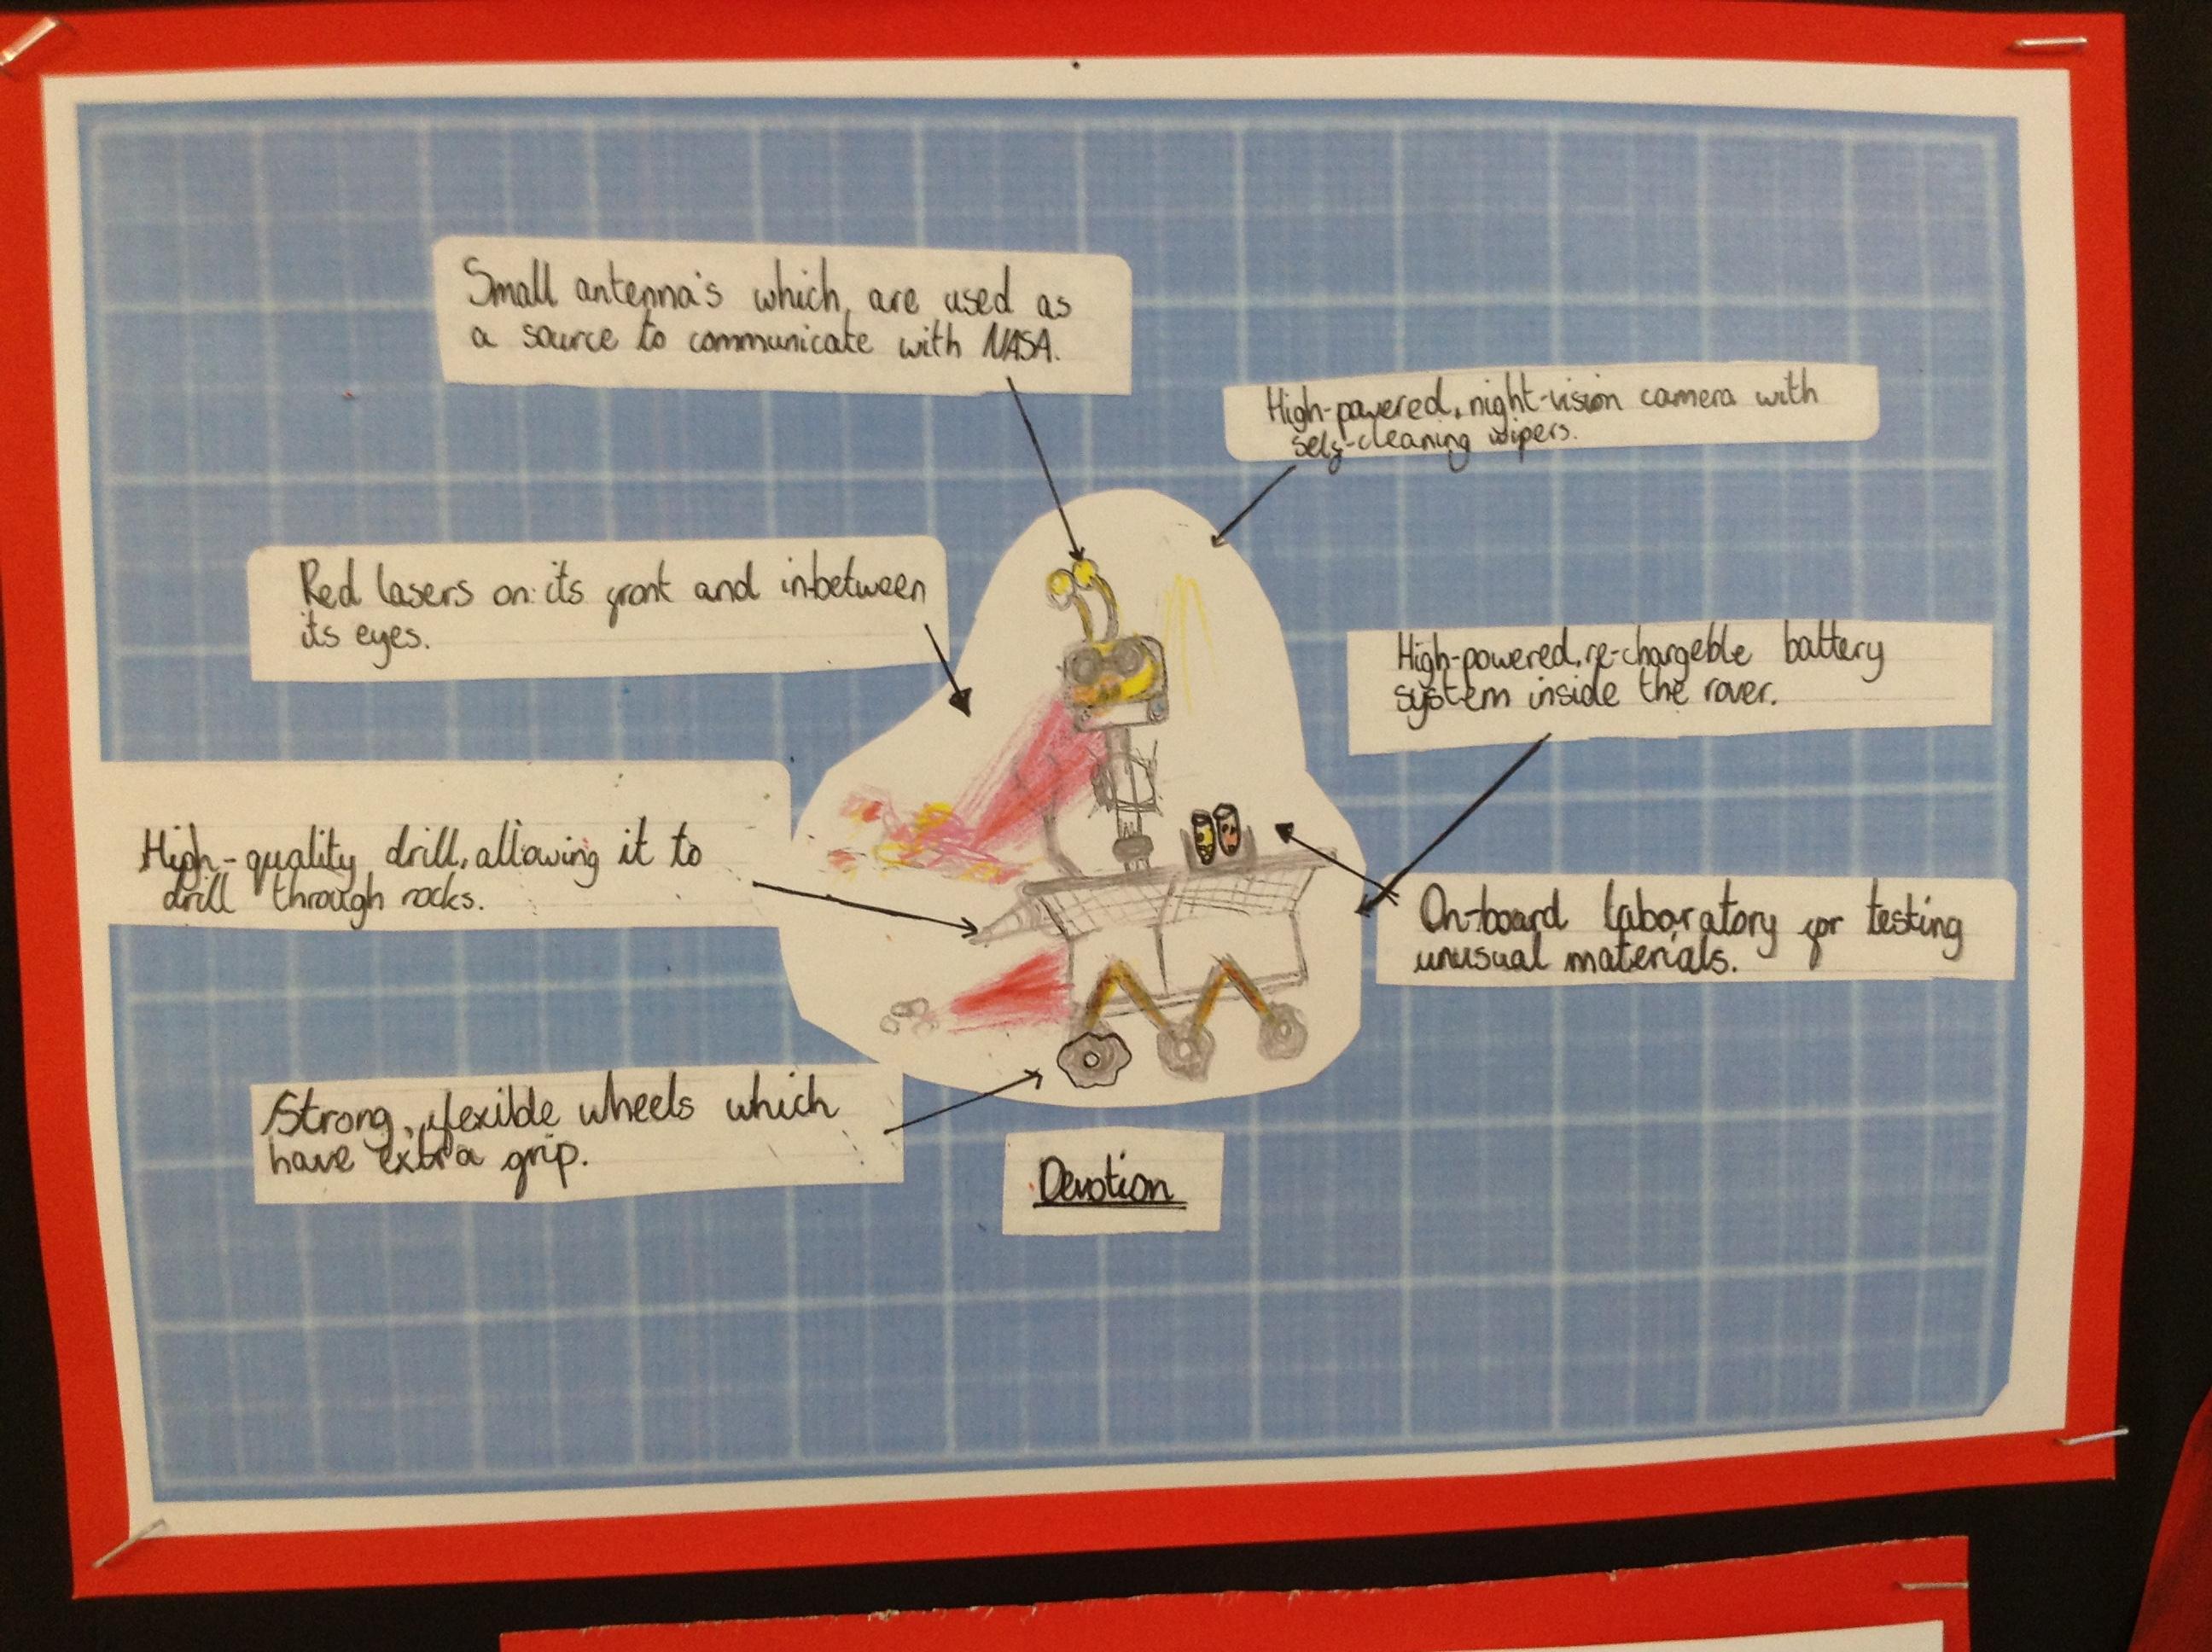 Small antenna's which are used as
a source to communicate with NASA.
High-powered, night-vision camera with
self-cleaning wipers.
Red lasers on its front and in-between
its eyes.
High-powered, re-chargeble battery
system inside the rover.
High-quality drill, allowing it to
drill through rocks.
On-board laboratory for testing
unusual materials.
Strong, flexible wheels which
have extra grip.
Devotion